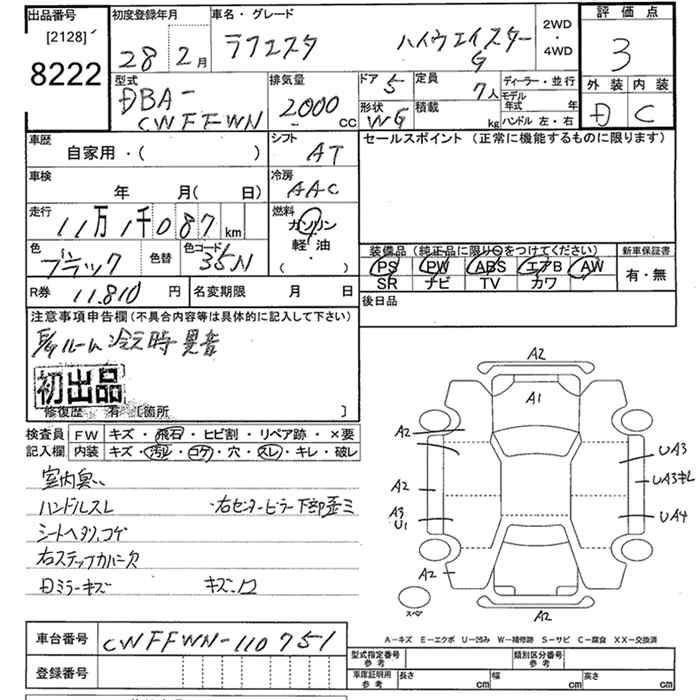 出品番号
[2128]
8222
初度登録年月
28年2月
車名・グレード
ラフェスタ ハイウェイスター G
2WD・4WD
評価点
3
外装 内装
D C
型式
DBA-CWFFWN
排気量
2000 CC
ドア 5
定員 7人
形状 WG
積載 kg
ディーラー・並行
モデル年式 年
ハンドル 左・右
車歴
自家用・( )
シフト
AT
セールスポイント (正常に機能するものに限ります)
車検
年 月( 日)
冷房
AAC
走行
11万1千087km
燃料
ガソリン
軽・油
( )
色
ブラック
色替
色コード
35N
装備品(純正品に限り○をつけてください)
新車保証書
PS PW ABS エアB AW
SR ナビ TV カワ
有・無
R券 11.810円
名変期限 月 日
後日品
注意事項申告欄(不具合内容等は具体的に記入して下さい)
E/Gルーム 冷元時 異音
初出品
修復歴 有 [箇所 ]
検査員記入欄
FW キズ・飛石・ヒビ割・リペア跡・×要
内装 キズ・汚れ・コゲ・穴・スレ・キレ・破レ
室内臭い
ハンドルスレ 右センターピラー下部歪ミ
シートヘタリ、コゲ
右ステップカバー欠
Dミラーキズ キズ、凹
A2
A1
A2
A2
A3
U1
A2
UA3
UA3キレ
UA4
A2
スペア
A-キズ E-エクボ U-凹み W-補修跡 S-サビ C-腐食 XX-交換済
車台番号 CWFFWN-110751
登録番号
型式指定番号 参考
類別区分番号 参考
車庫証明用 参考
長さ cm 幅 cm 高さ cm